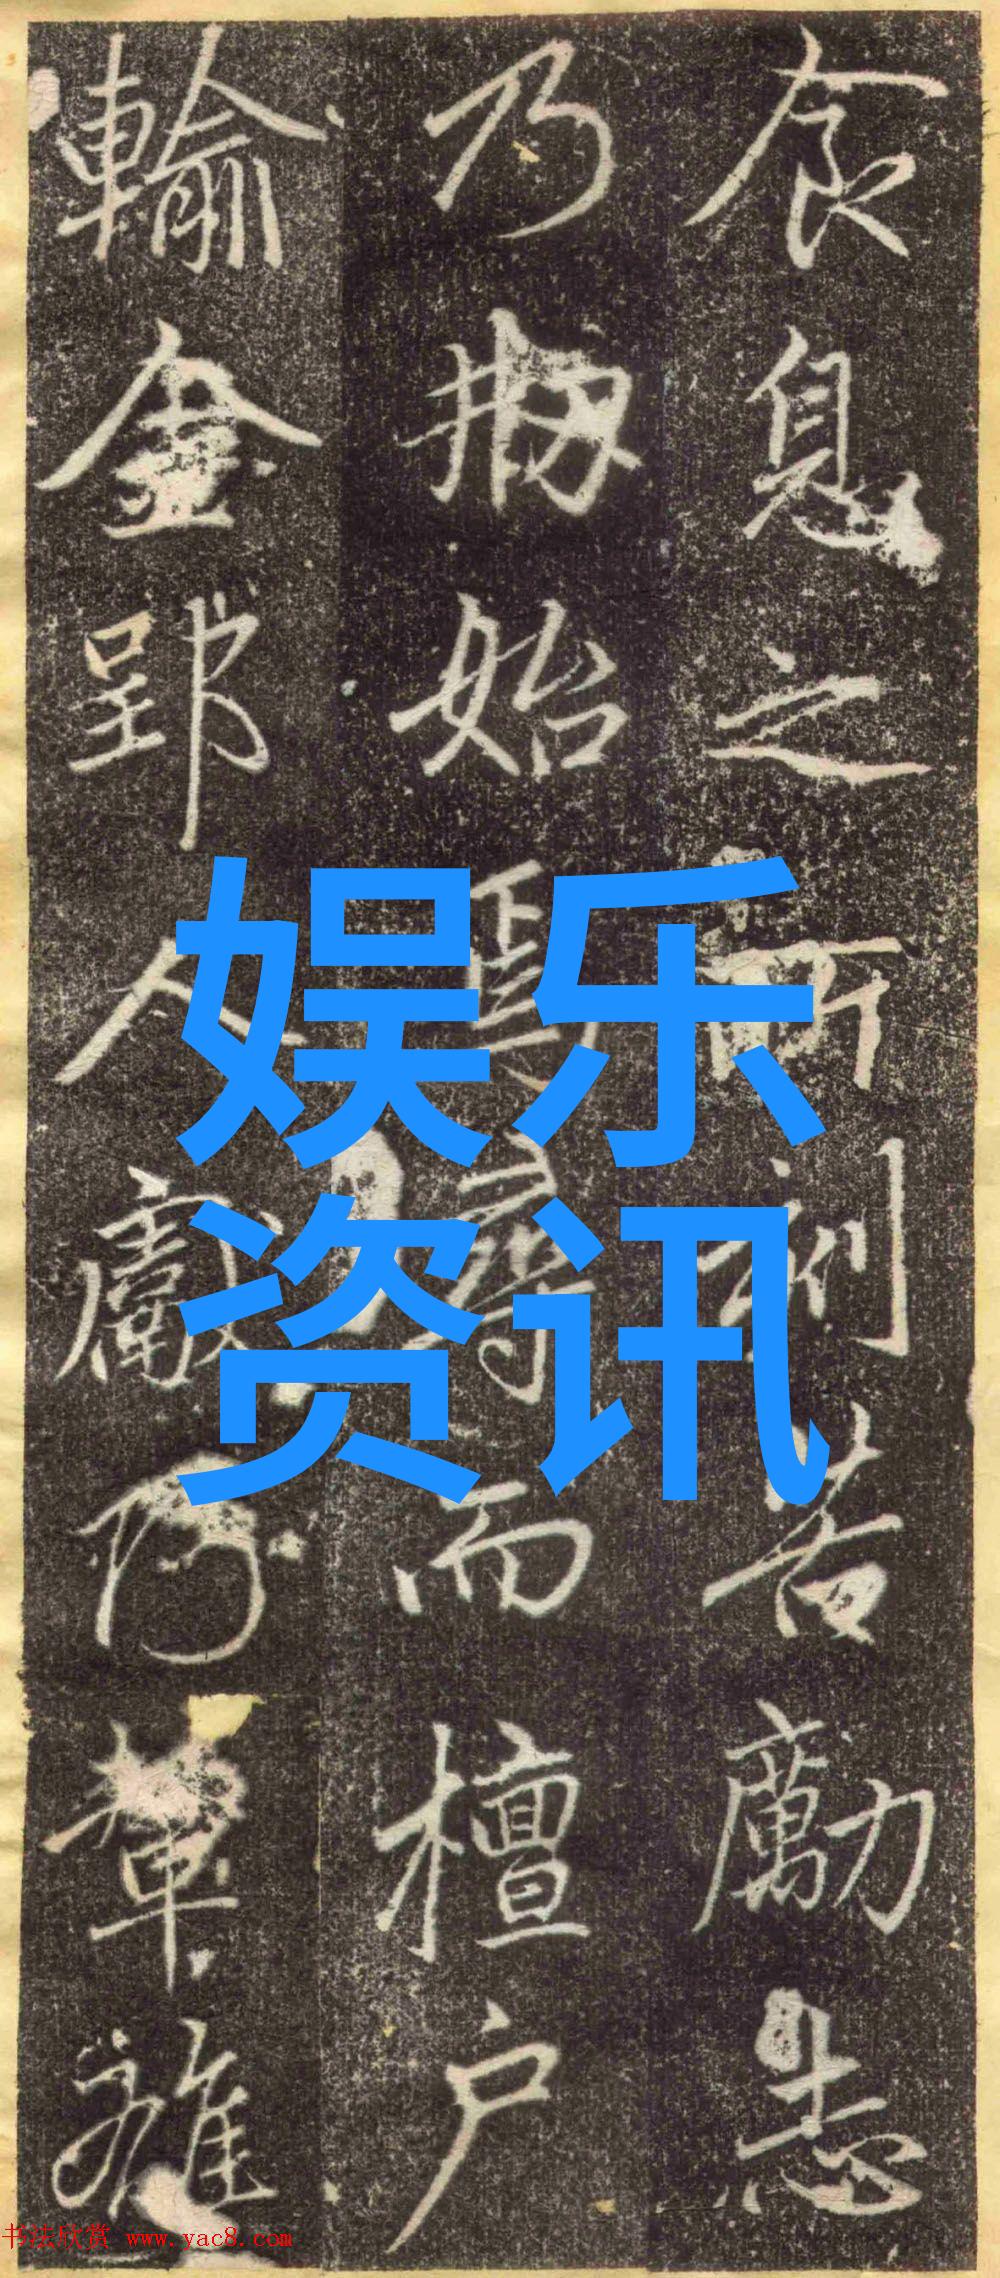 食息之所苦勵志
乃始焉尋而檀户
輸金郢人獻輦
娱乐
资讯
书法欣赏 www.yac8.com